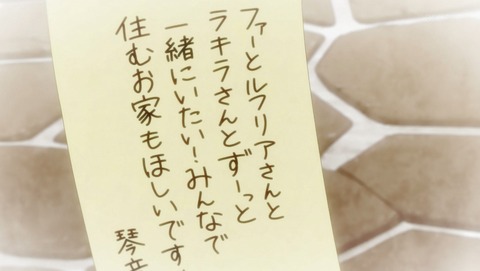 ファーとルフリアさんと
ラキラさんとずーっと
一緒にいたい！みんなで
住むお家もほしいです
琴音